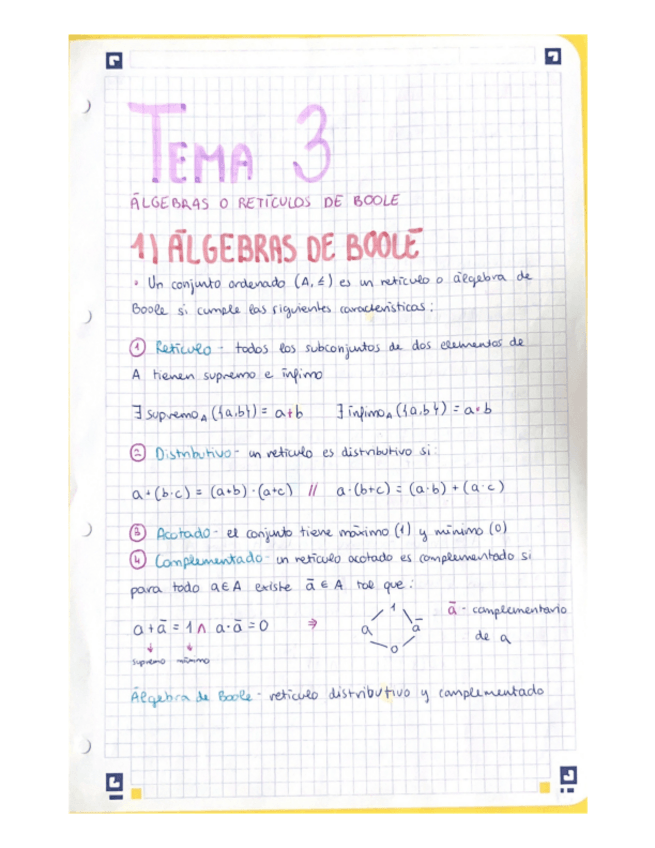 TEMA 3
ÁLGEBRAS O RETÍCULOS DE BOOLE
1) ÁLGEBRAS DE BOOLE
• Un conjunto ordenado (A, ≤) es un retículo o álgebra de
Boole si cumple las siguientes características:
① Retículo - todos los subconjuntos de dos elementos de
A tienen supremo e ínfimo
∃ supremo_A ({a,b}) = a+b ∃ ínfimo_A ({a,b}) = a·b
② Distributivo - un retículo es distributivo si:
a+(b·c) = (a+b)·(a+c) // a·(b+c) = (a·b)+(a·c)
③ Acotado - el conjunto tiene máximo (1) y mínimo (0)
④ Complementado - un retículo acotado es complementado si
para todo a∈A existe ā∈A tal que:
a+ā = 1 ∧ a·ā = 0 ⇒ 1 a ā 0 ā - complementario
de a
↓ ↓
supremo mínimo
Álgebra de Boole - retículo distributivo y complementado